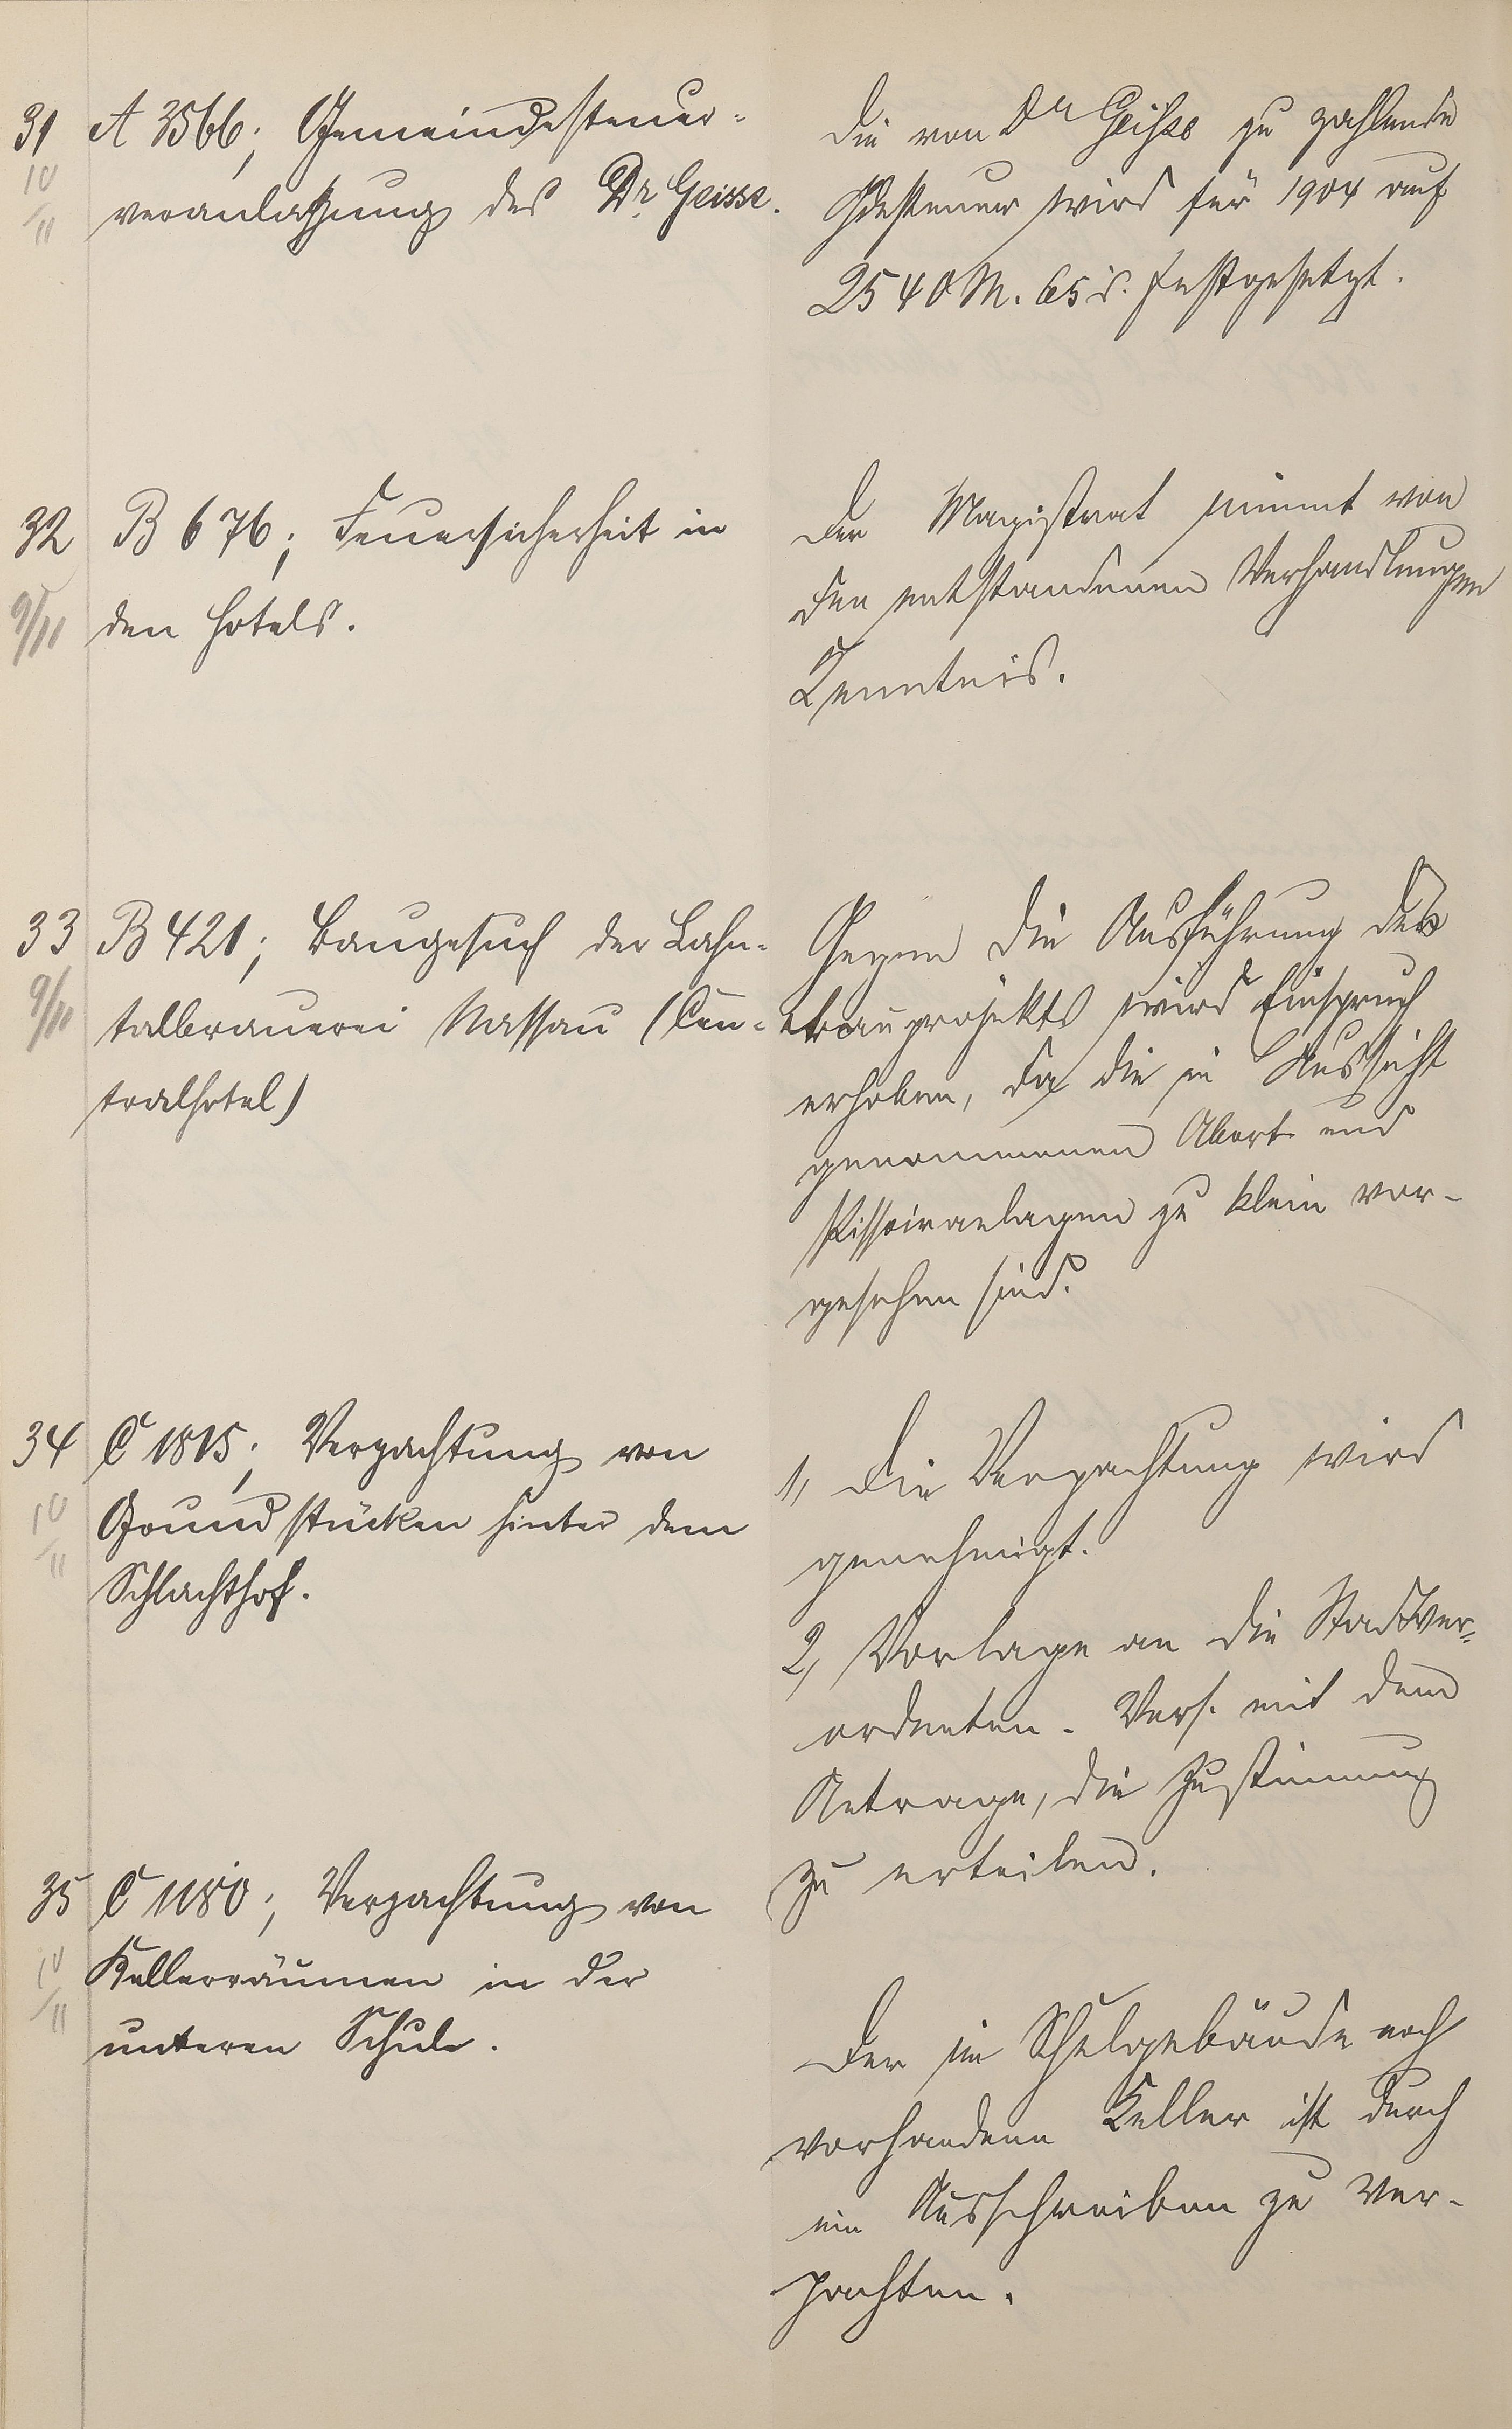 31
10/11
A 3566; Gemeindesteuer-
veranlagung des Dr. Geisse.
Die von Dr Geisse zu zahlende
Gdesteuer wird für 1904 auf
2540 M. 65 d. festgesetzt.
32
9/11
B 676; Feuersicherheit in
den Hotels.
Der Magistrat nimmt von
den entstandenen Verhandlungen
Kenntnis.
33
9/11
B 421; Baugesuch der Lahn-
talbrauerei Nassau (Cen-
tralhotel)
Gegen die Ausführung des
Bauprojekts wird Einspruch
erhoben, da die in Aussicht
genommenen Abort und
Pissoiranlagen zu klein vor-
gesehen sind.
34
10/11
C 1815; Verpachtung von
Grundstücken hinter dem
Schlachthof.
1, Die Verpachtung wird
genehmigt.
2, Vorlage an die Stadtver-
ordneten-Vers. mit dem
Antrage, die Zustimmung
zu erteilen.
35
10/11
C 1180; Verpachtung von
Kellerräumen in der
unteren Schule.
Der im Schulgebäude noch
vorhandene Keller ist durch
ein Ausschreiben zu ver-
pachten.